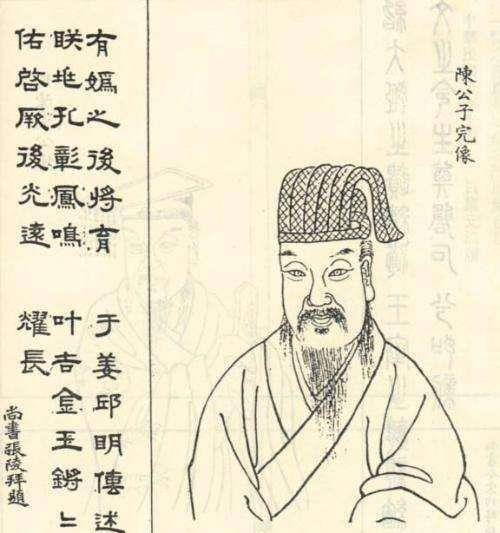 陳公子完像
有媯之後將育于姜邱明傳述
孔彰鳳鳴叶吉金玉鏘〻
佑啓厥後光遠耀長
尚書張陵拜題